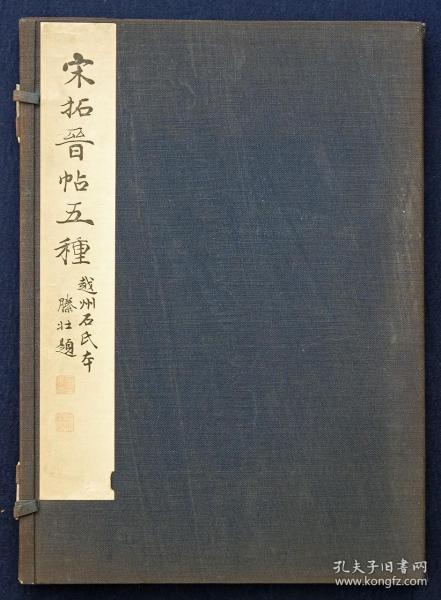 宋拓晉帖五種
越州石氏本
滕壮題
孔夫子旧书网
www.kongfz.com